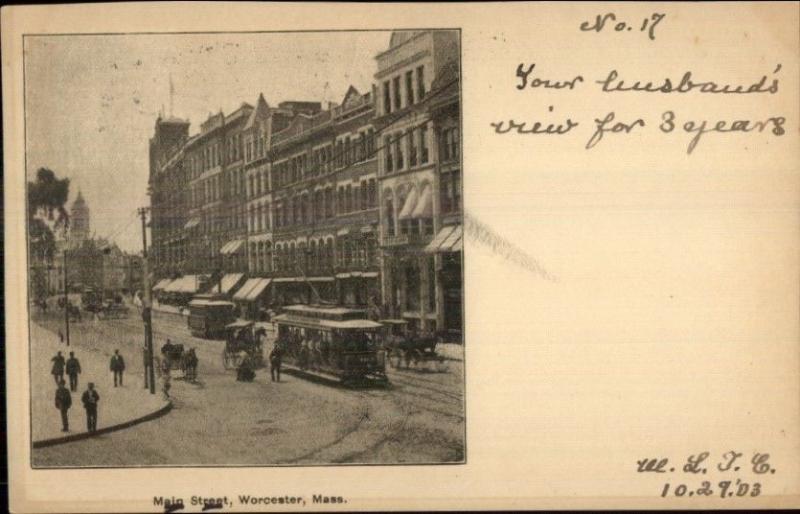 No. 17
Your husband's
view for 3 years
Main Street, Worcester, Mass.
W. L. T. C.
10.29.'03